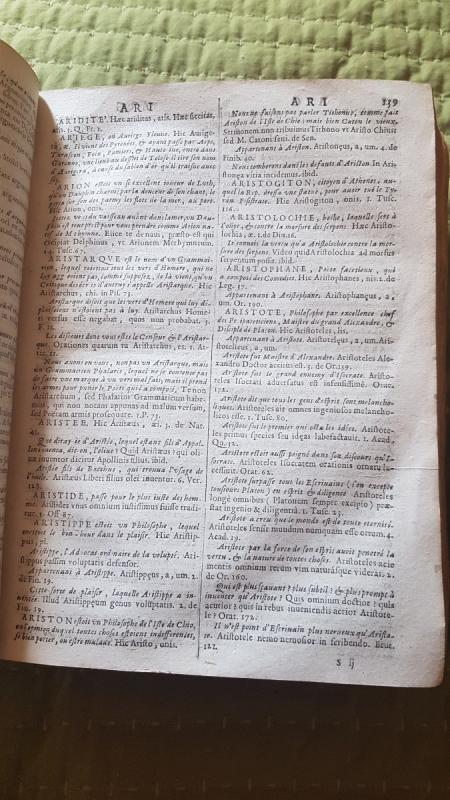 ARI
ARIDITE'. Hæc ariditas, atis. Hæc siccitas,
atis. 3. Q. Fr. 1.
ARIEGE, ou Auriege Fleuve. Hic Aurige-
ra, æ. Il vient des Pyrenées, & ayant passé par Aqs,
Tarascon, Foix, Pamiers, & Haute rive, entre dans
Garonne, une lieue au dessus de Tolose il tire son nom
d'Aurigera, à cause du sablon d'or qu'il traisne
ARION estoit un si excellent joueur de Luth,
qu'un Dauphin charmé par la douceur de son chant, le
porta sur son dos parmy les flots de la mer, au port.
Hic Arion, onis.
Jetter
phin est tout prest pour vous prendre comme Arion na-
tif de Methymne. Eiice te de navi; præsto est qui
excipiat Delphinus, ut Arionem Methymneum.
2. Tusc. 67.
ARISTARQUE est le nom d'un Grammai-
rien, lequel rejettoit tous les vers d'Homere, qui ne
luy
Critique des écrits d'autruy s'appelle Aristarque. Hic
Aristarchus, chi. in Pis. 73.
Aristarque disoit que les vers d'Homere qui luy dé-
plaisoient n'estoient pas à luy. Aristarchus Home-
ri versus esse negabat, quos non probabat. 3.
F. 11.
Les discours dont vous estes le Censeur & l'Aristar-
que. Orationes quarum tu Aristarchus, es. 1. At-
tic. 11.
Nous avons en vous, non pas un Aristarque, mais
un Grammairien Phalaris, lequel ne se contente pas
de faire une marque à un vers mal fait; mais il prend
les armes pour punir le Poëte qui l'a composé. Te non
Aristarchum, sed Phalarin Grammaticum habe-
mus, qui non notam apponas ad malum versum,
sed Poëtam armis prosequare. 1. P. 73.
ARISTEE. Hic Aristæus, æi. 3. de Nat.
45.
Que diray-ie d'Aristée, lequel estant fils d'Apol-
lon inventa, dit on, l'olive? Quid Aristæus? qui oli-
væ inventor dicitur Apollinis filius. ibid.
Aristée fils de Bacchus, qui trouva l'usage de
l'huile. Aristæus Liberi filius olei inventor. 6. Ver.
123.
ARISTIDE, passe pour le plus iuste des hom-
mes. Aristides unus omnium iustissimus fuisse tradi-
tur. Off. 87.
ARISTIPPE estoit un Philosophe, lequel
mettoit le bon-heur dans le plaisir. Hic Aristip-
pus, pi.
Aristippe, l'Advocat ordinaire de la volupté. Aris-
tippus passim voluptatis defensor.
Appartenant à Aristippe. Aristippeus, a, um. 2.
de Fin. 39.
Cette sorte de plaisir, laquelle Aristippe a
inventée. Illud Aristippeum genus voluptatis. 2. de
Fin. 39.
ARISTON estoit un Philosophe de l'Isle de Chio,
auquel toutes choses estoient indifferentes,
se bien porter, ou estre malade. Hic Aristo, onis.
ARI 139
Nous ne faisons pas parler Tithonus, comme fait
Ariston de l'Isle de Chio; mais bien Caton le vieux.
Sermonem non tribuimus Tithono ut Aristo Chius
sed M. Catoni seni. de Sen.
Appartenant à Ariston. Aristoneus, a, um. 4. de
Finib. 40.
Nous tombons dans les defauts d'Ariston. In Aris-
tonea vitia incidimus. ibid.
ARISTOGITON, citoyen d'Athenes, au-
quel la Rep. dressa une statue, pour avoir tué le Ty-
ran Pisistrate. Hic Aristogiton, onis. 1. Tusc.
116.
ARISTOLOCHIE, herbe, laquelle sert à
l'usage, & contre la morsure des serpens. Hæc Aristo-
lochia, æ. 1. de Div. 16.
Je connois la vertu qu'a l'Aristolochie contre la mor-
sure des serpens. Video quid Aristolochia ad morsus
serpentum possit. ibid.
ARISTOPHANE, Poëte facetieux, qui
a composé des Comedies. Hic Aristophanes, nis. 2. de
Leg. 37.
Appartenant à Aristophane. Aristophaneus, a,
um. Or. 190.
ARISTOTE, Philosophe par excellence chef
des Peripateticiens, Maistre du grand Alexandre, &
Disciple de Platon. Hic Aristoteles, lis.
Appartenant à Aristote. Aristoteleus, a, um. Aris-
toticus, a, um.
Aristote fut Maistre d'Alexandre. Aristoteles Ale-
xandro Doctor accitus est. 3. de Or. 159.
Aristote fut le grand ennemy d'Isocrate. Aristo-
teles Isocrati adversatus est infensissimè. Orat.
172.
Aristote dit que tous les gens d'esprit sont melancho-
liques. Aristoteles ait omnes ingeniosos melancho-
licos esse. 1. Tusc. 80.
Aristote fut le premier qui osta les idées. Aristote-
les primus species seu ideas labefactavit. 1. Acad.
Qu. 32.
Aristote estoit aussi peigné dans son discours qu'I-
socrate. Aristoteles Isocratem orationis ornatu la-
cessivit. Orat. 62.
Aristote surpasse tous les Escrivains (i'en excepte
tousiours Platon) en esprit & diligence. Aristoteles
longè omnibus (Platonem semper excipio) præ-
stat ingenio & diligentiâ. 1. Tusc. 23.
Aristote a creu que le monde est de toute eternité.
Aristoteles sensit mundum numquam esse ortum. 4.
Acad. 19.
Aristote par la force de son esprit avoit penetré la
vertu, & la nature de toutes choses. Aristoteles acie
mentis omnium rerum vim naturásque viderat. 2.
de Or. 160.
Qui est plus sçavant? plus subtil? & plus prompt à
inventer qu'Aristote? Quis omnium doctior? quis
acutior? quis in rebus inveniendis acrior Aristote-
le? Orat. 172.
Il n'est point d'Escrivain plus nerveux qu'Arista-
te. Aristotele nemo nervosior in scribendo. Brut.
121.
S ij